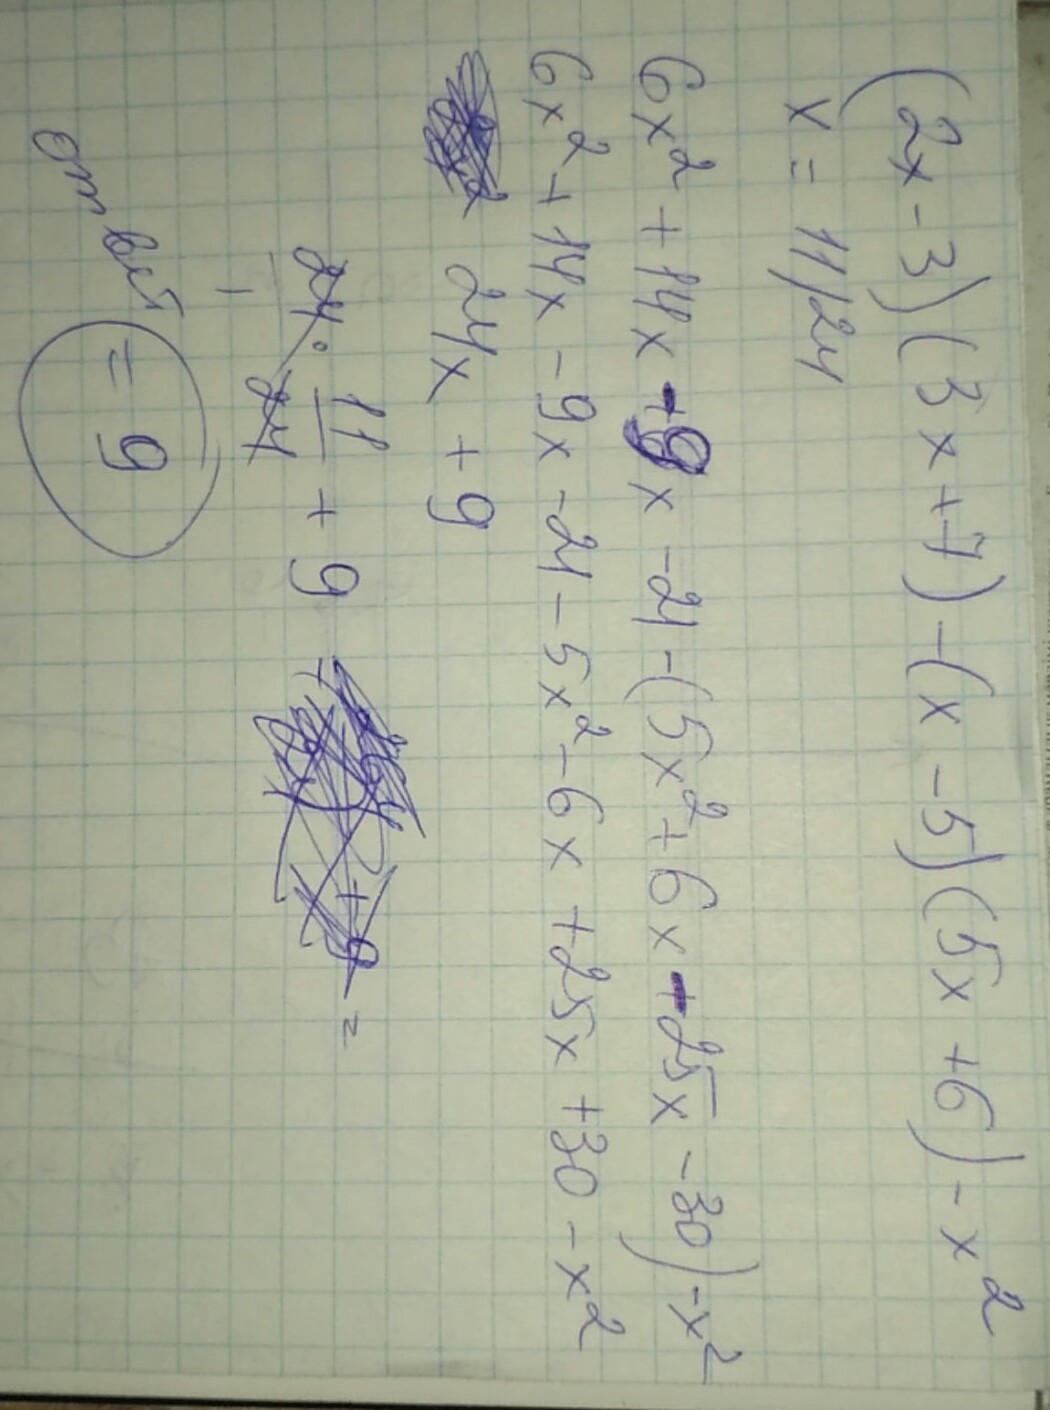 (2x - 3)(3x + 7) - (x - 5)(5x + 6) - x²
x = 11/24
6x² + 14x - 9x - 21 - (5x² + 6x - 25x - 30) - x²
6x² + 14x - 9x - 21 - 5x² - 6x + 25x + 30 - x²
24x + 9
24 · 11/24 + 9
1
= 9